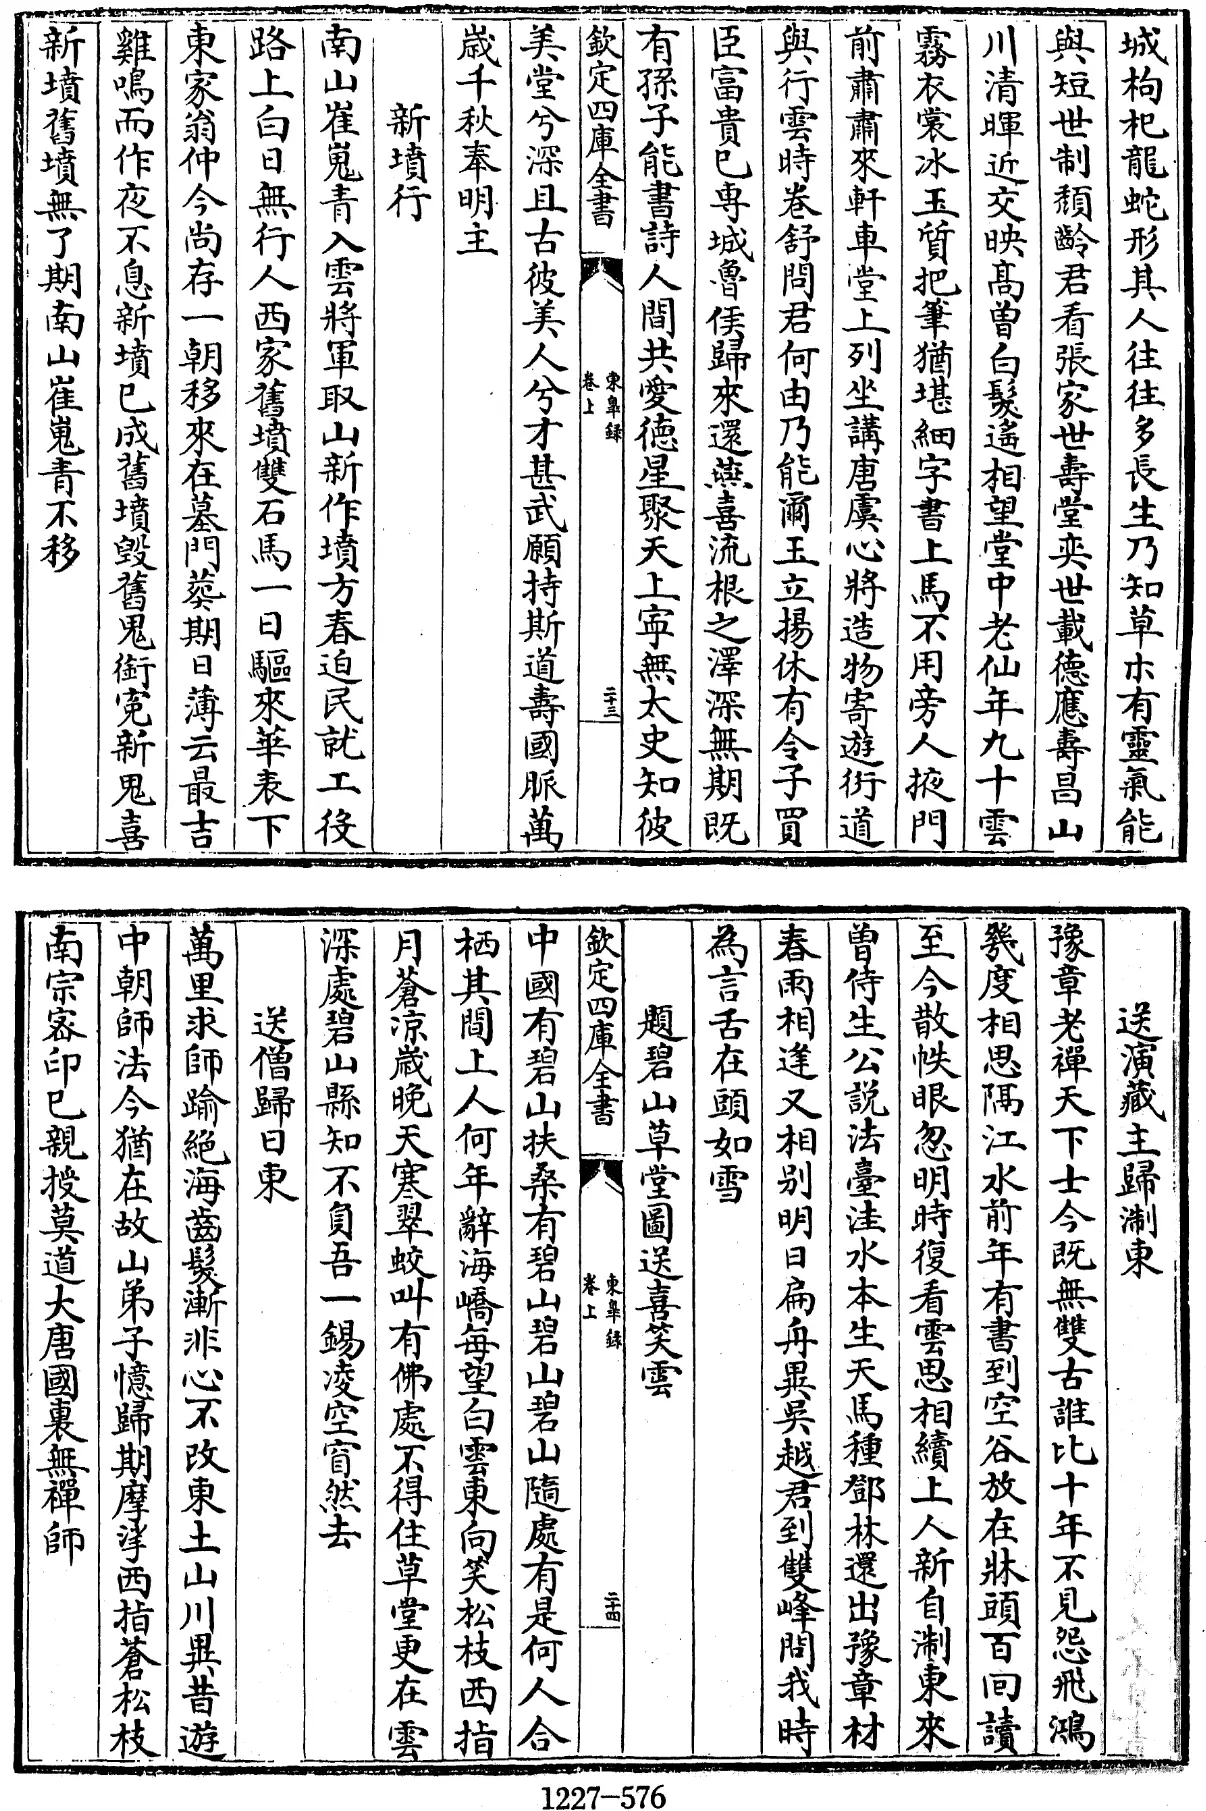 城枸杞龍蛇形其人往往多長生乃知草木有靈氣能
與短世制頹齡君看張家世壽堂奕世載德應壽昌山
川清暉近交映髙曾白髮遙相望堂中老仙年九十雲
霧衣裳冰玉質把筆猶堪細字書上馬不用旁人掖門
前肅肅來軒車堂上列坐講唐虞心將造物寄遊衍道
與行雲時卷舒問君何由乃能爾玉立揚休有令子買
臣富貴已専城魯侯歸來還燕喜流根之澤深無期既
有孫子能書詩人間共愛德星聚天上寜無太史知彼
欽定四庫全書
東臯錄
卷上
二十三
美堂兮深且古彼美人兮才甚武願持斯道壽國脈萬
歳千秋奉明主
新墳行
南山崔嵬青入雲將軍取山新作墳方春迫民就工役
路上白日無行人西家舊墳雙石馬一日驅來華表下
東家翁仲今尚存一朝移來在墓門葬期日薄云最吉
雞鳴而作夜不息新墳已成舊墳毀舊鬼銜寃新鬼喜
新墳舊墳無了期南山崔嵬青不移
送演藏主歸淛東
豫章老禪天下士今既無雙古誰比十年不見怨飛鴻
幾度相思隔江水前年有書到空谷放在牀頭百回讀
至今散帙眼忽明時復看雲思相續上人新自淛東來
曽侍生公説法臺洼水本生天馬種鄧林還出豫章材
春雨相逢又相别明日扁舟異吳越君到雙峰問我時
為言舌在頭如雪
題碧山草堂圖送喜笑雲
欽定四庫全書
東臯錄
卷上
二十四
中國有碧山扶桑有碧山碧山隨處有是何人合
栖其間上人何年辭海嶠每望白雲東向笑松枝西指
月蒼凉歳晚天寒翠蛟叫有佛處不得住草堂更在雲
深處碧山縣知不負吾一錫凌空窅然去
送僧歸日東
萬里求師踰絶海齒髮漸非心不改東土山川異昔遊
中朝師法今猶在故山弟子憶歸期摩挲西指蒼松枝
南宗宻印已親授莫道大唐國裏無禪師
1227-576